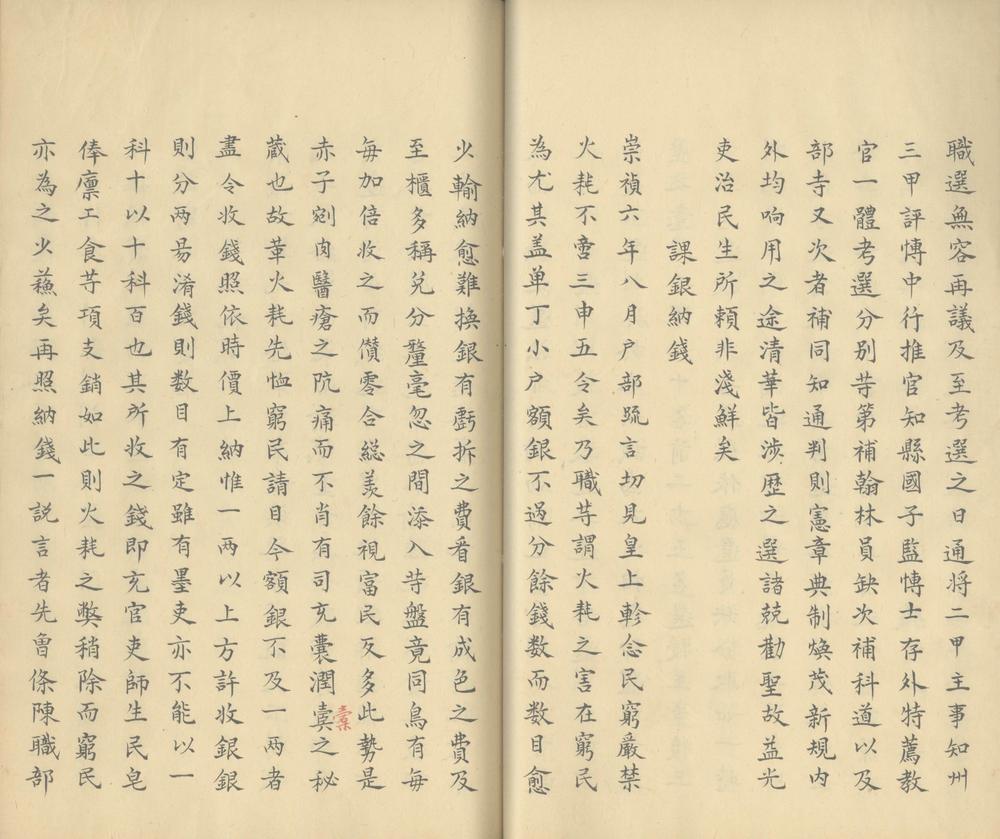 職選無容再議及至考選之日通將二甲主事知州
三甲評愽中行推官知縣國子監博士存外特薦教
官一體考選分别䓁第補翰林員缺次補科道以及
部寺又次者補同知通判則憲章典制煥茂新規内
外均响用之途清華皆涉歴之選諸兢勸聖故益光
吏治民生所頼非淺鮮矣
課銀納錢
崇禎六年八月户部疏言切見皇上軫念民窮嚴禁
火耗不啻三申五令矣乃職䓁謂火耗之害在窮民
為尤其盖单丁小户額銀不過分餘錢数而数目愈
少輸納愈難換銀有虧拆之費看銀有成色之費及
至櫃多稱兑分釐毫忽之間添入䓁盤竟同鳥有毎
毎加倍收之而儹零合総羡餘視富民反多此勢是
赤子剜肉醫瘡之阬痛而不肖有司充囊潤橐之秘
蔵也故革火耗先恤窮民請日今額銀不及一两者
盡令收錢照依時價上納惟一两以上方許收銀銀
則分两易淆錢則数目有定雖有墨吏亦不能以一
科十以十科百也其所收之錢即充官吏師生民皂
俸廪工食䓁項支銷如此則火耗之獘稍除而窮民
亦為之少蘓矣再照納錢一説言者先魯條陳職部